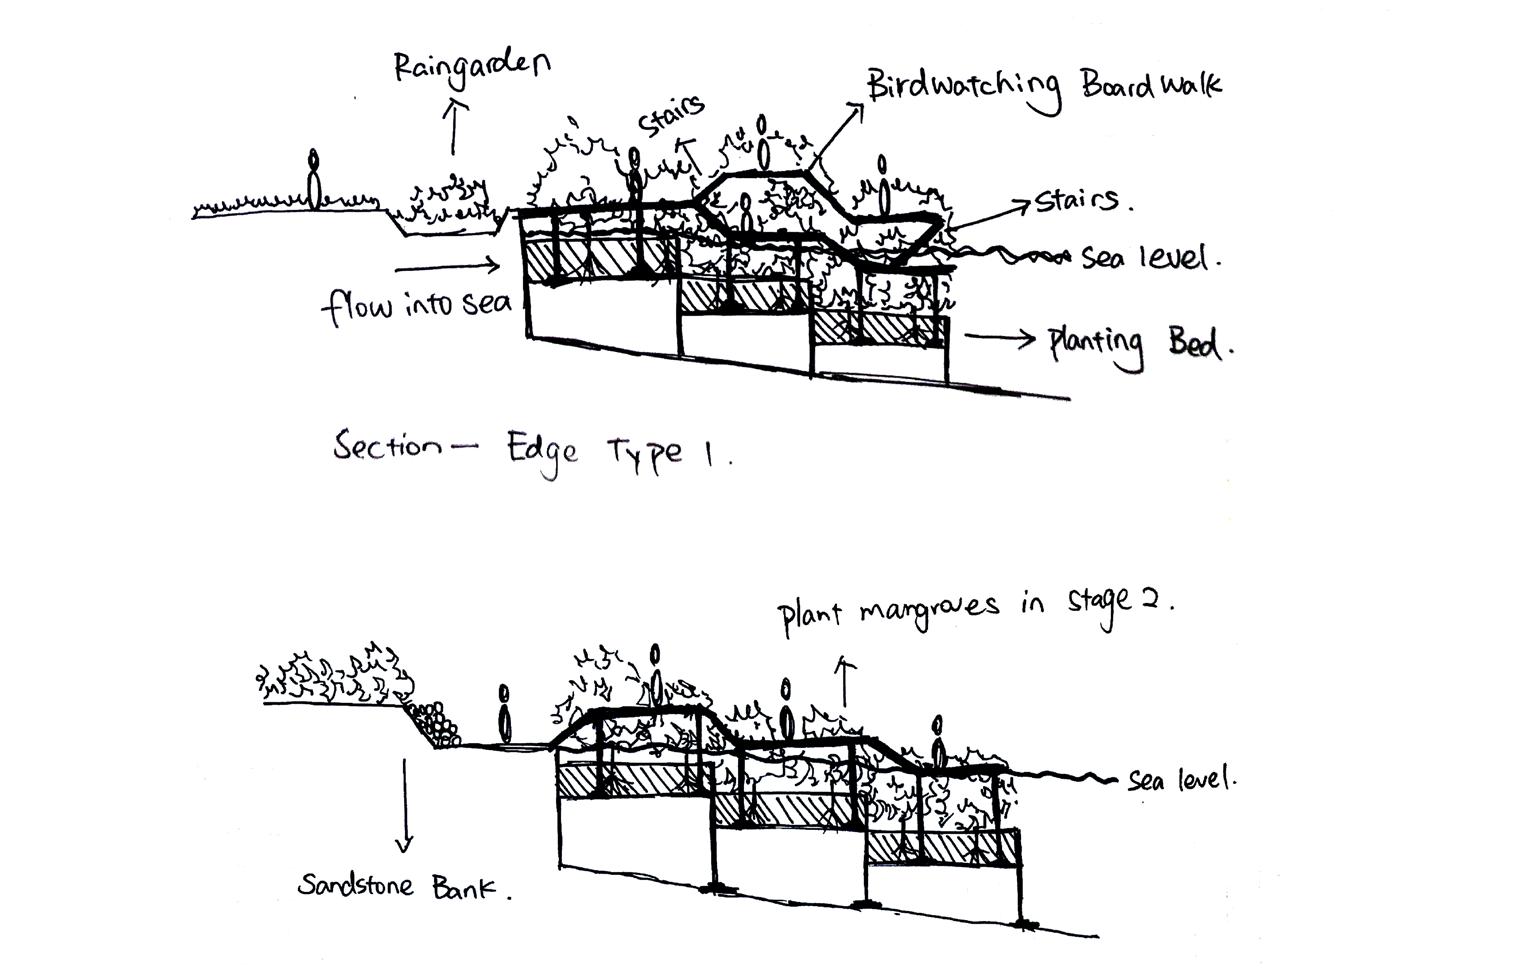 Raingarden
Stairs
Birdwatching Boardwalk
Stairs.
Sea level.
flow into sea
Planting Bed.
Section — Edge Type 1.
Plant mangroves in stage 2.
Sea level.
Sandstone Bank.